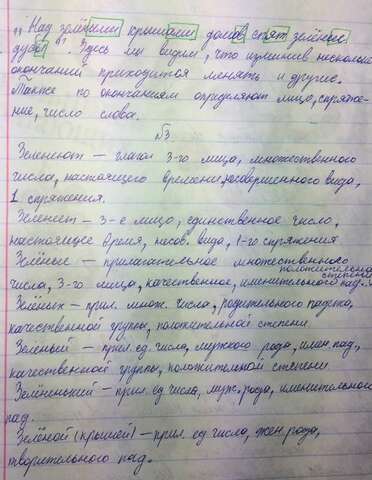 "Над зелёными крышами домов спят зелёные
дубы". Здесь мы видим, что изменив несколько
окончаний приходится менять и другие.
Также по окончаниям определяют лицо, спряже-
ние, число слова.
№3
Зеленеют – глагол 3-го лица, множественного
числа, настоящего времени, несовершенного вида,
1 спряжения.
Зеленеет – 3-е лицо, единственное число,
настоящее время, несов. вида, 1-го спряжения
Зелёные – прилагательное множественного
положительной степени
числа, 3-го лица, качественное, именительного пад.
Зелёных – прил. множ. числа, родительного падежа,
качественной группы, положительной степени.
Зеленый – прил. ед. числа, мужского рода, имен. пад.,
качественной группы, положительной степени
Зелёненький – прил. ед числа, муж. рода, именительного
пад.
Зелёной (крышей) – прил. ед. числа, жен. рода,
творительного пад.